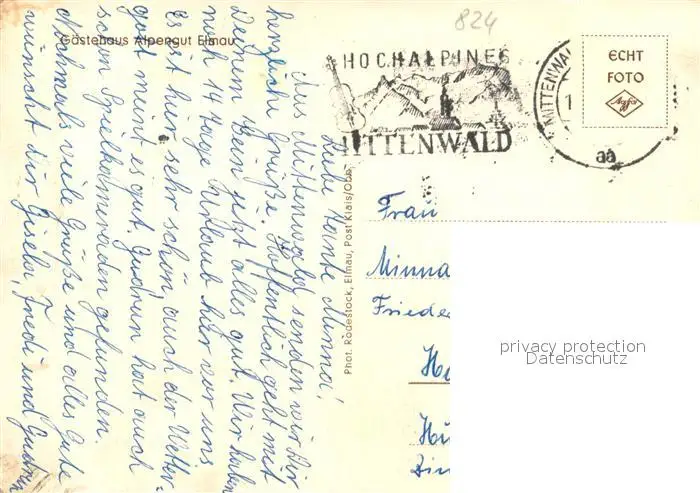 824
Gästehaus Alpengut Elmau
HOCHALPINES
MITTENWALD
MITTENWA
1
aa
ECHT
FOTO
Agfa
Liebe Tante Minna!
Aus Mittenwald senden wir Dir
herzliche Grüße. Hoffentlich geht mit
Deinem Bein jetzt alles gut. Wir haben
noch 14 Tage Urlaub hier vor uns
Es ist hier sehr schön, auch der Wetter-
gott meint es gut. Gudrun hat auch
schon Spielkameraden gefunden.
Nochmals viele Grüße und alles Gute
wünscht Dir Gisela, Fredi und Gudrun
Phot. Rodestock, Elmau, Post Klais/Obb.
Frau
Minna
Friede
privacy protection
Datenschutz